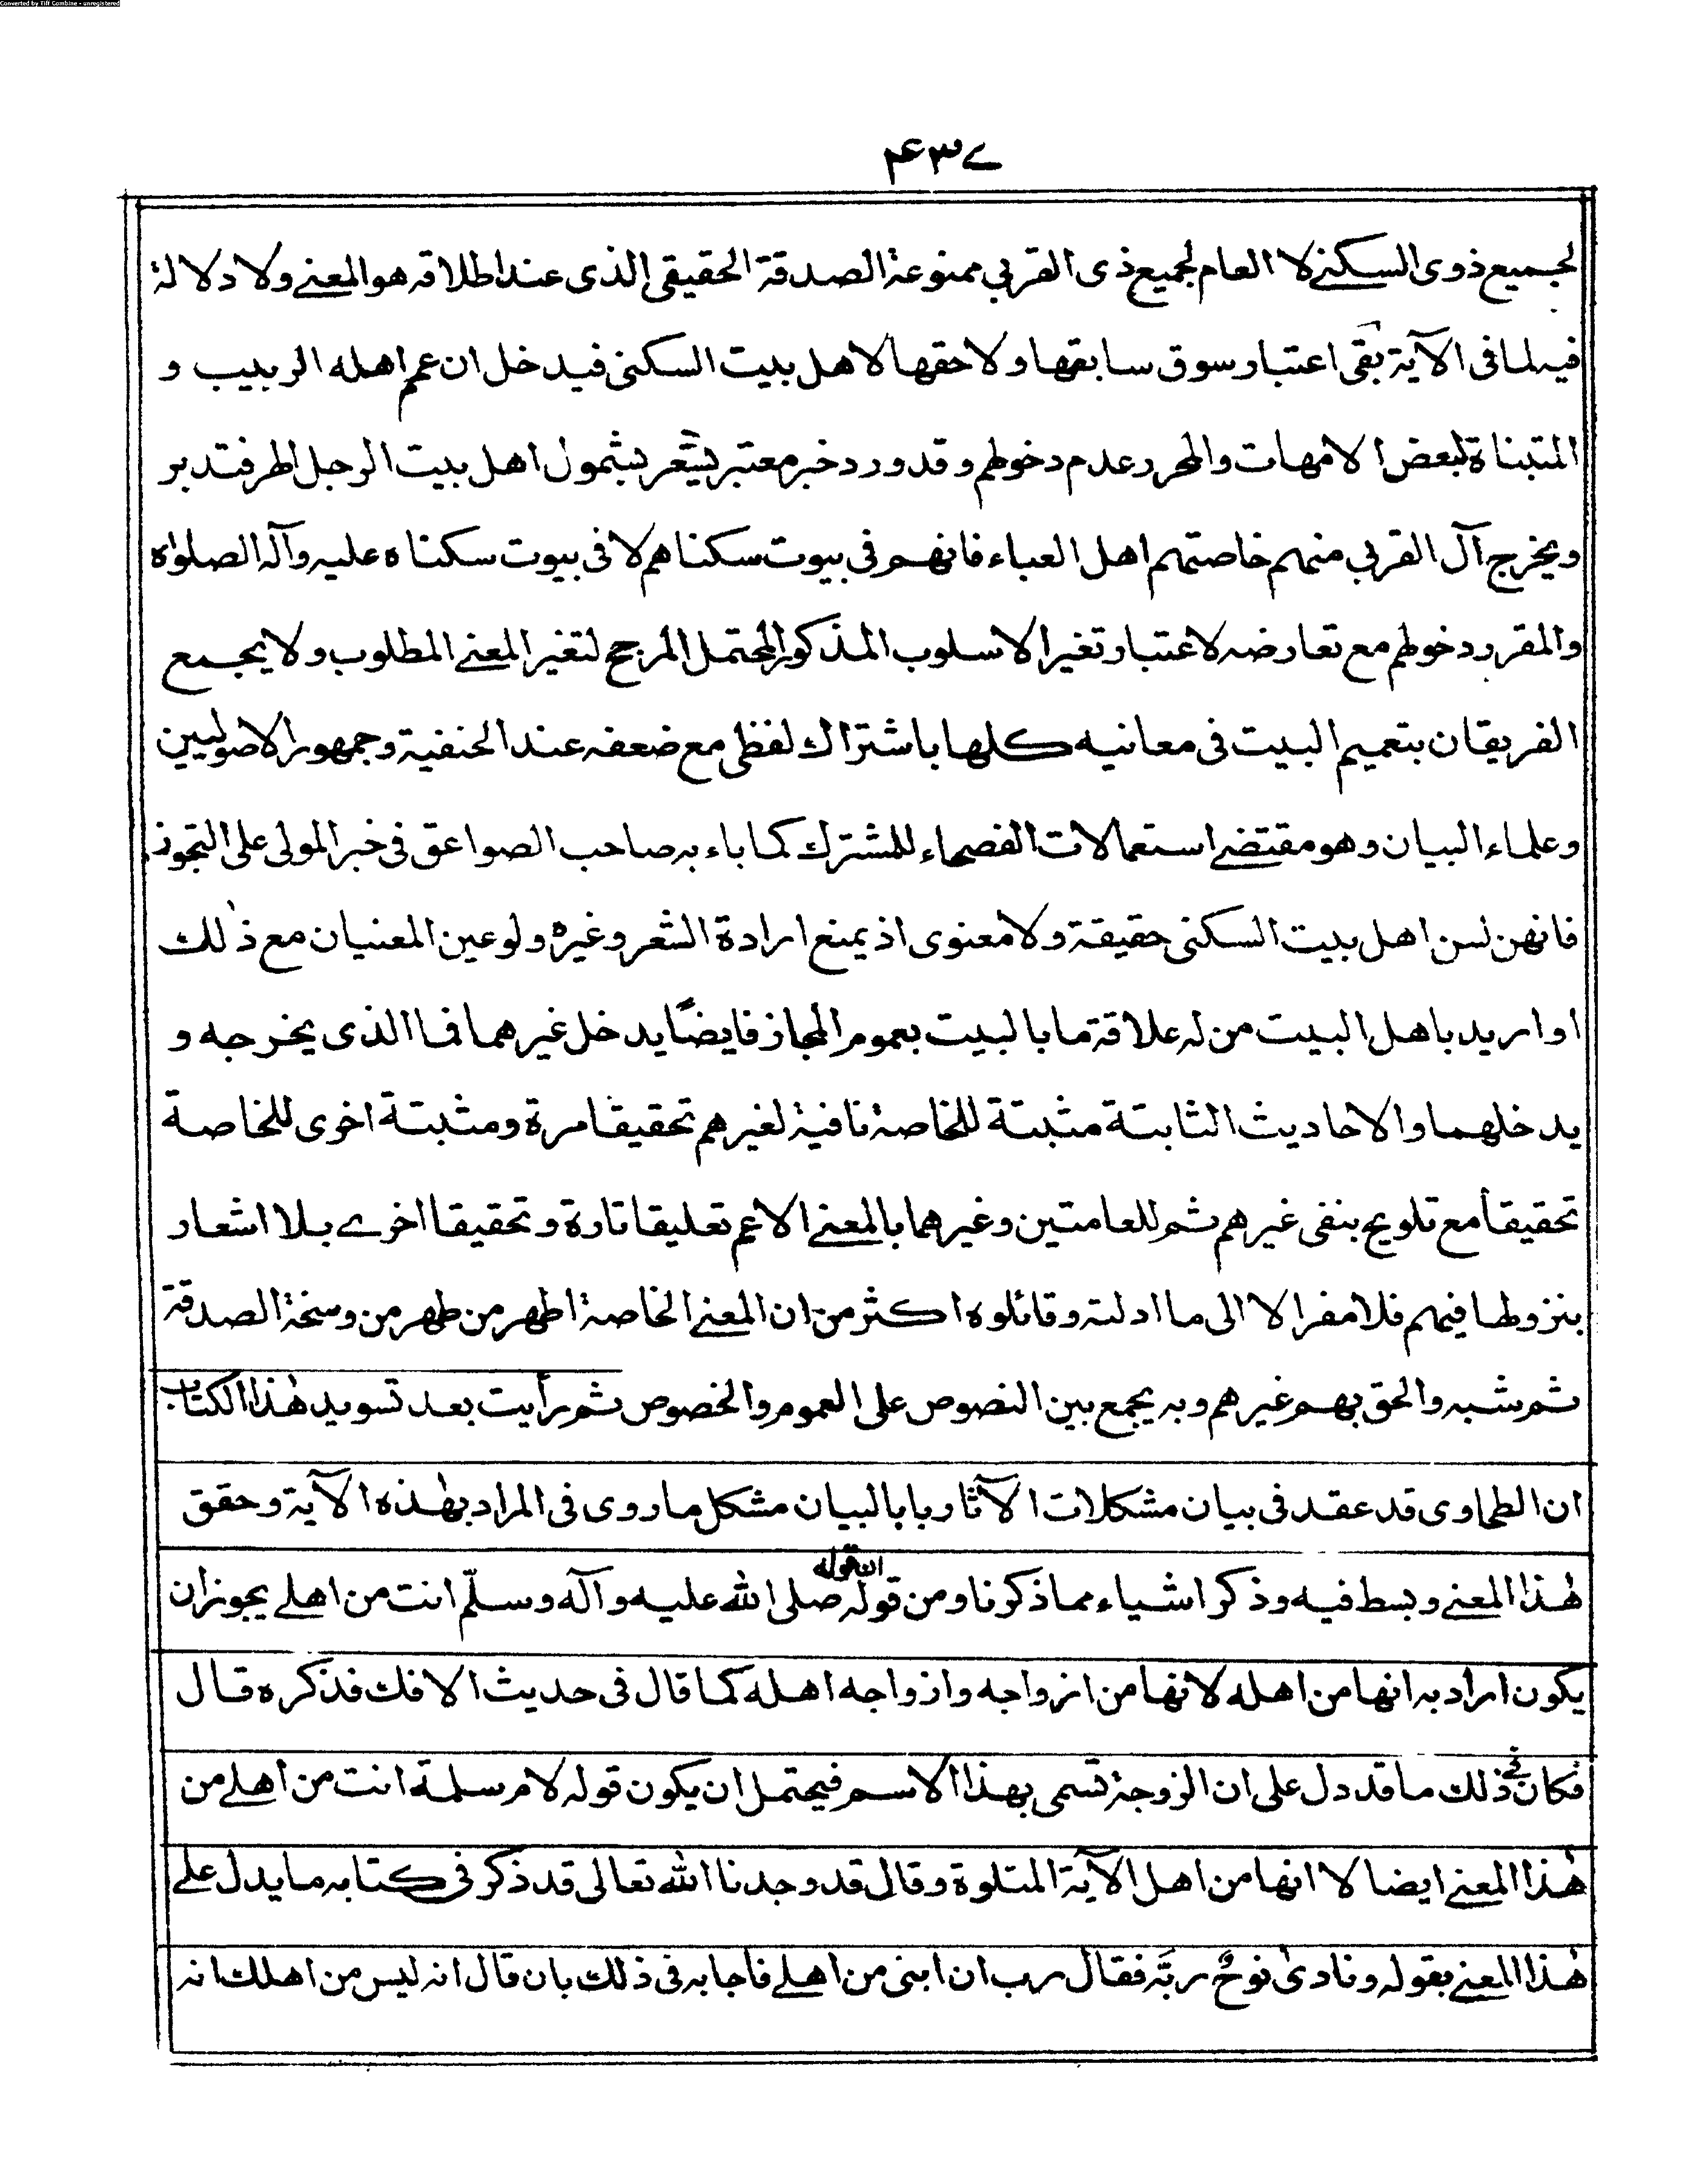 Converted by Tiff Combine - unregistered
۴۳۷
لجميع ذوى السكنے لا العام لجميع ذى القربى ممنوعة الصدقة الحقيقى الذى عند اطلاقه هو المعنے ولا دلالة
فيه لما فى الآية بقى اعتبار سوق سابقها ولاحقها لاهل بيت السكنى فيدخل ان عم اهله الربيب و
المتبناة لبعض الامهات والمحرر عدم دخولهم وقد ورد خبر معتبر يشعر بشمول اهل بيت الرجل لهم فتدبر
ويخرج آل القربى منهم خاصتهم اهل العباء فانهم فى بيوت سكناهم لا فى بيوت سكناه عليه وآله الصلواة
والمقرر دخولهم مع تعارضه لاعتبار تغير الاسلوب المذكور المحتمل المرجح لتغير المعنے المطلوب ولا يجمع
الفريقان بتعميم البيت فى معانيه كلها باشتراك لفظى مع ضعفه عند الحنفية وجمهور الاصوليين
وعلماء البيان وهو مقتضے استعمالات الفصحاء للمشترك كما باء به صاحب الصواعق فى خبر المولى على التجوز
فانهن لسن اهل بيت السكنى حقيقة ولا معنوى اذ يمنع ارادة الشعر وغيره ولو عين المعنيان مع ذلك
او اريد باهل البيت من له علاقة ما بالبيت بعموم المجاز فايضًا يدخل غيرهما فما الذى يخرجه و
يدخلهما والاحاديث الثابتة مثبتة للخاصة نافية لغيرهم تحقيقا مرة ومثبتة اخرى للخاصة
تحقيقا مع تلويح بنفى غيرهم ثم للعامتين وغيرهما بالمعنے الاعم تعليقا تارة وتحقيقا اخرے بلا اشعار
بنزولها فيهم فلا مفر الا الى ما ادلته وقائلوه اكثر من ان المعنے الخاصة اطهر من طهر من وسخة الصدقة
ثم شبه والحق بهم غيرهم وبه يجمع بين النصوص على العموم والخصوص ثم رأيت بعد تسويد هٰذا الكتاب
ان الطحاوى قد عقد فى بيان مشكلات الآثار بابا لبيان مشكل ما روى فى المراد بهٰذه الآية وحقق
هٰذا المعنے وبسط فيه وذكر اشياء مما ذكرنا ومن قوله ان قوله صلى الله عليه وآله وسلّم انت من اهلے يجوز ان
يكون اراد به انها من اهله لانها من ازواجه وازواجه اهله كما قال فى حديث الافك فذكره قال
فكان فى ذلك ما قد دل على ان الزوجة تسمى بهذا الاسم فيحتمل ان يكون قوله لام سلمة انت من اهلے من
هٰذا المعنے ايضا لا انها من اهل الآية المتلوة وقال قد وجدنا الله تعالى قد ذكر فى كتابه ما يدل علے
هٰذا المعنے بقوله ونادىٰ نوحٌ ربَّه فقال رب ان ابنى من اهلے فاجابه فى ذلك بان قال انه ليس من اهلك انه